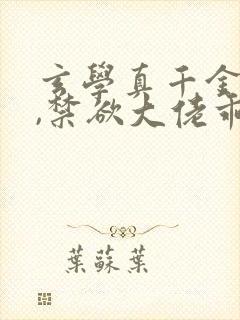 玄學真千金
,禁欲大佬乖
葉蘇葉